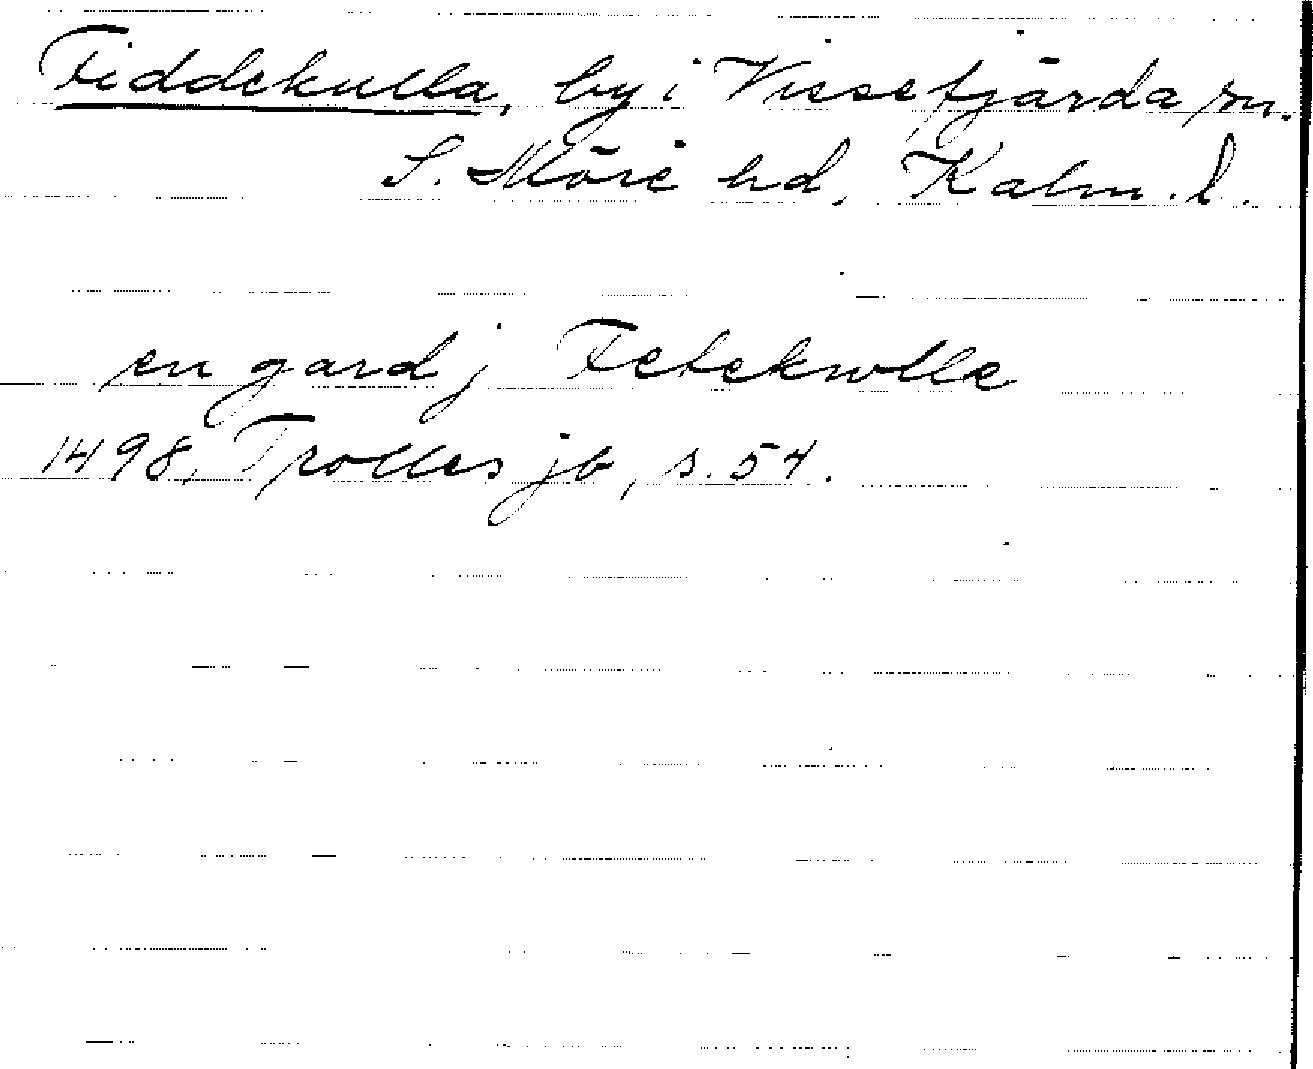 Fiddekulla, by i Vissefjärda sn.
S. Möre hd, Kalm. l.
en gard j Fetekwlle
1498, Trolles jb, s. 54.